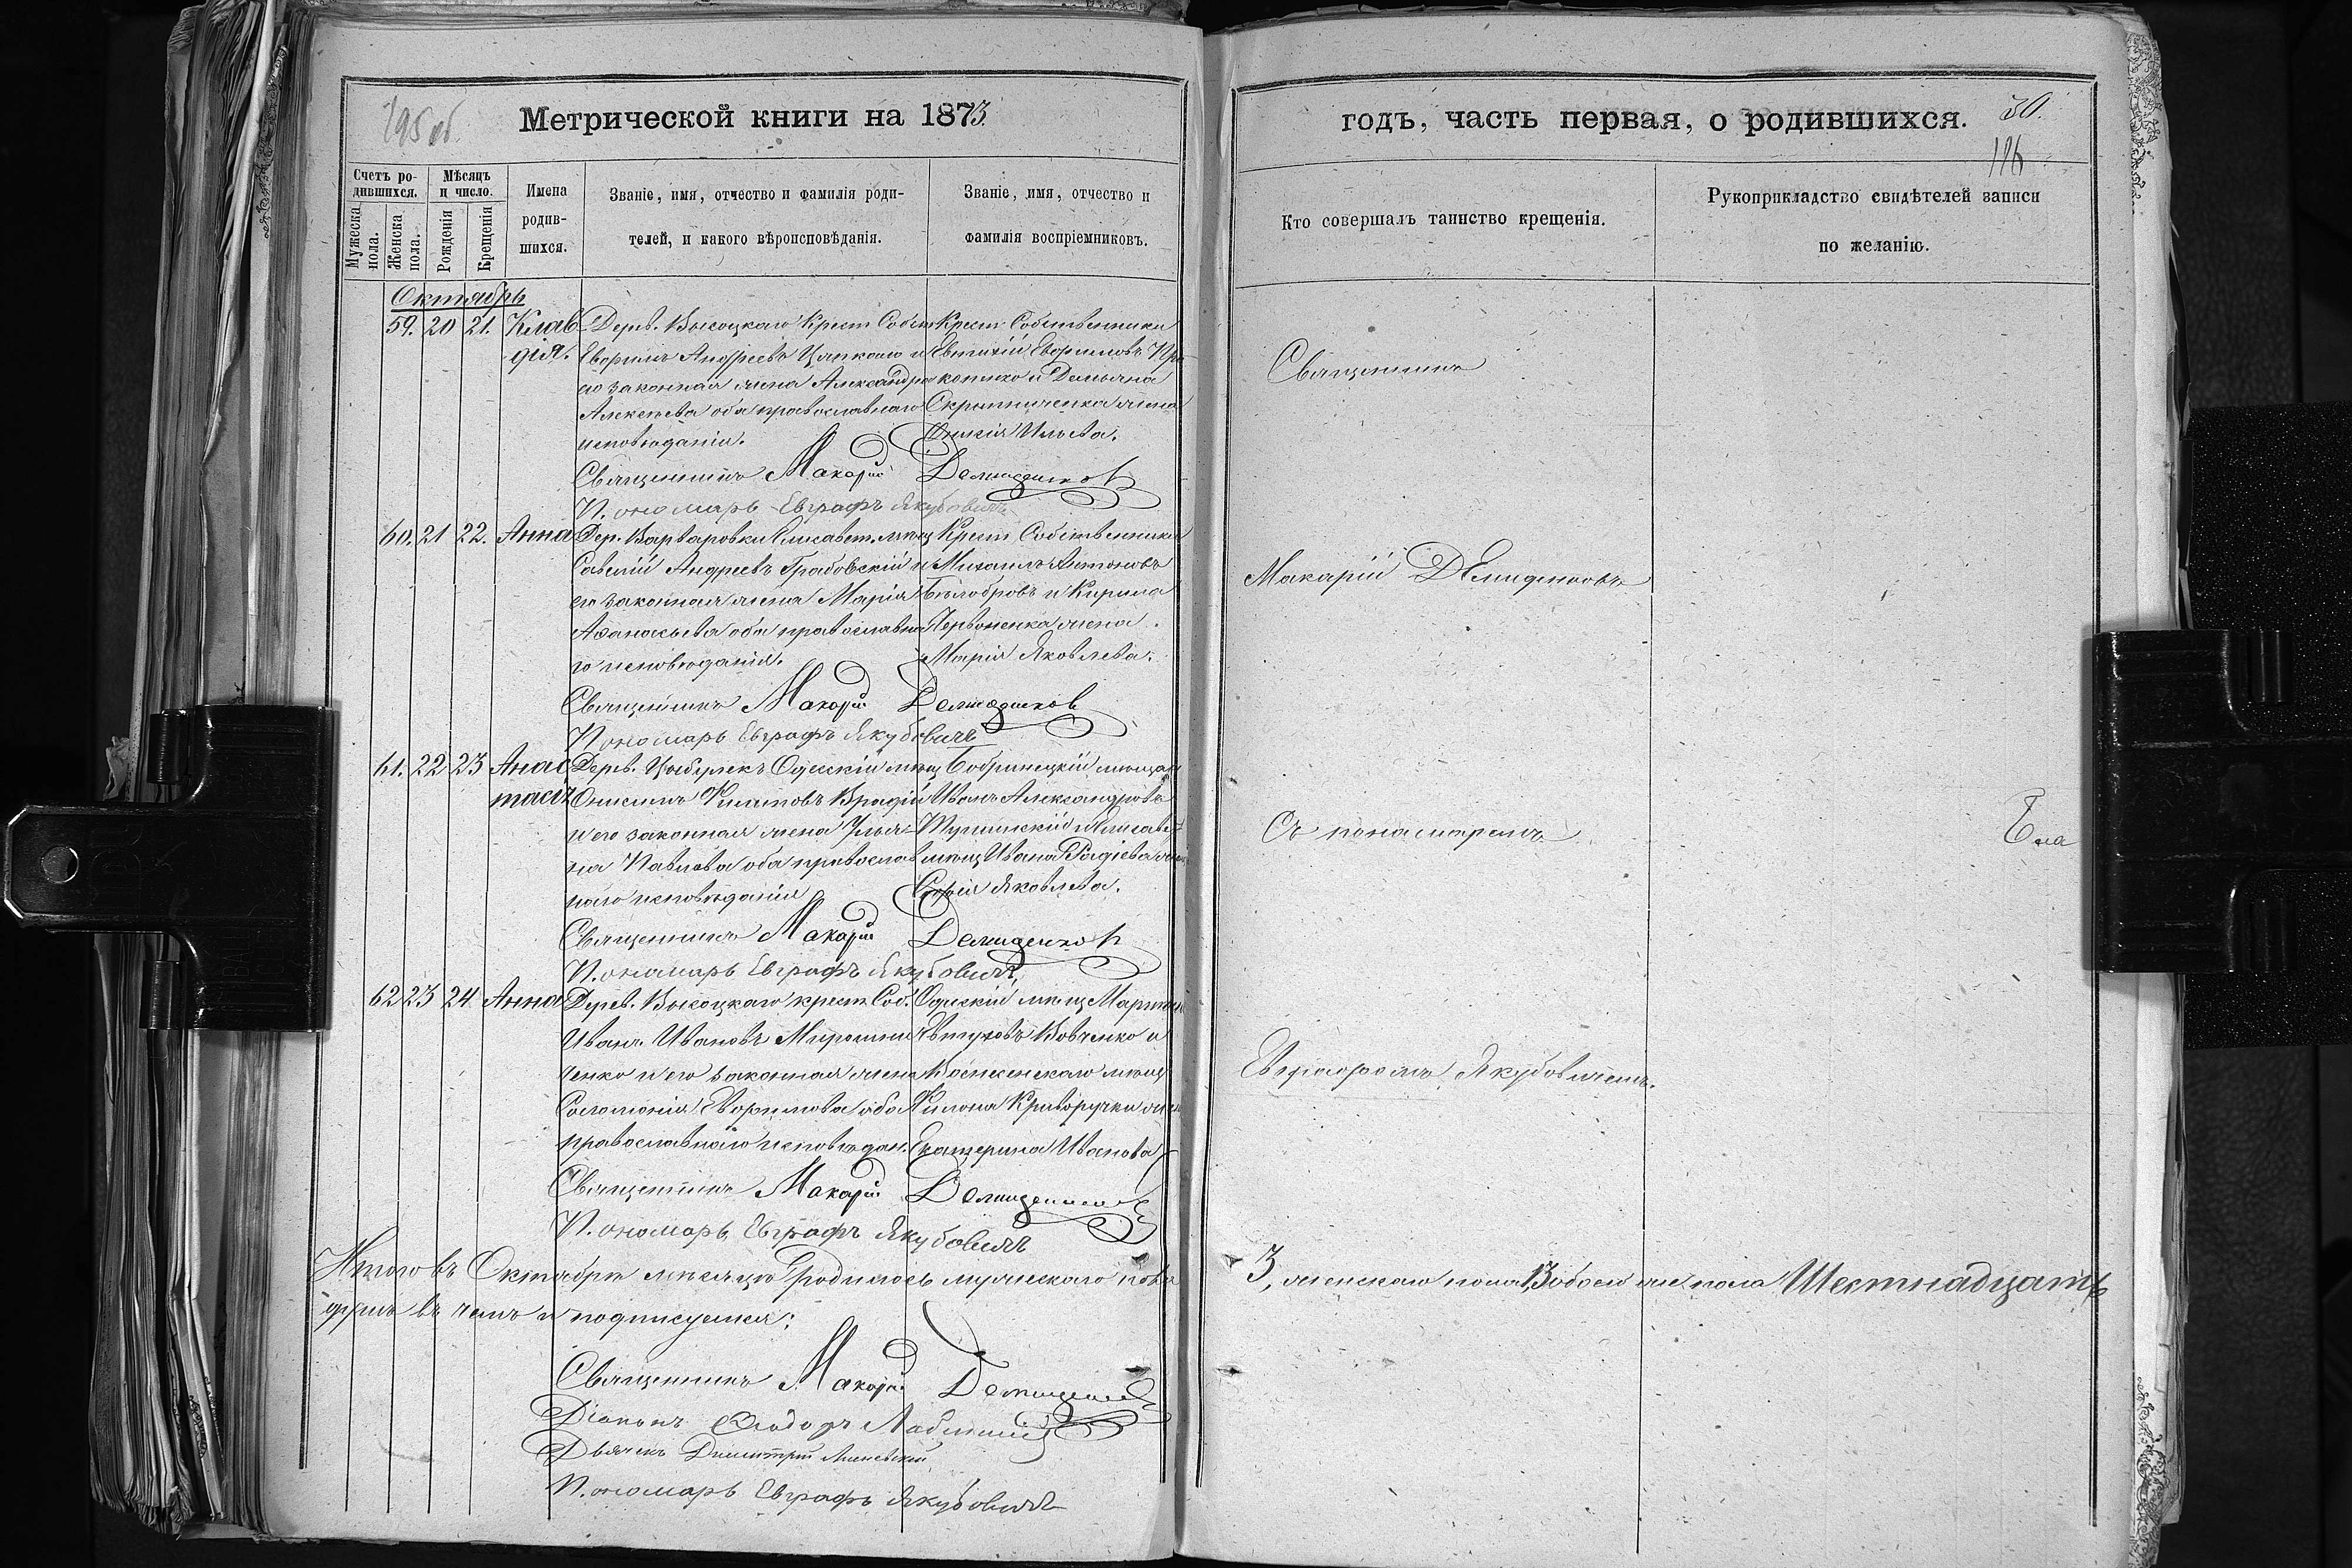 195 об.
Метрической книги на 1873
Счетъ ро-
дившихся.
Мужеска
пола.
Женска
пола.
Мѣсяцъ
и число.
Рожденія
Крещенія
Имена
родив-
шихся.
Званіе, имя, отчество и фамилія роди-
телей, и какого вѣроисповѣданія.
Званіе, имя, отчество и
фамилія воспріемниковъ.
Октябрь
59. 20 21. Клав-
дія.
Дерев. Высоцкаго Крест. Собст
Андреевъ и
его законная жена Александра
Алексѣева оба православнаго
исповѣданія.
Крест. Собственники
Евтихій
и Демьяна
Скрипниченка жена
Ильева.
Священникъ Макарій Демиденковъ
Пономарь Евграфъ Якубовичъ
60. 21 22. Анна
Дер. Варваровки Елисавет. мѣщ
Савелій Андреевъ Грабовскій и
его законная жена Марія
Аѳанасьева оба православна
го исповѣданія.
Крест. Собственники
Михаилъ Антоновъ
Бѣлобровъ и Кирила
Червоненка жена
Марія Яковлева.
Священникъ Макарій Демиденков
Пономарь Евграфъ Якубовичъ
61. 22 23 Анас
тасія
Дерев. Одесскій мѣщ
Онисимъ Филатовъ и
и его законная жена Улья-
на Павлова оба православ
наго исповѣданія
Бобринецкій мѣщан
Иванъ Александровъ
и Елисавет
мѣщ Ивана жен
Софія Яковлева.
Священникъ Макарій Демиденков
Пономарь Евграфъ Якубовичъ
62 23 24 Анна
Дерев. Высоцкаго крест. Соб.
Иванъ Ивановъ Мирошни
ченко и его законная жена
Соломонія оба
православнаго исповѣдан.
Одесскій мѣщ
Вовченко и
мѣщ
Филона Криворучки жен
Екатерина Иванова
Священникъ Макарій Демиденков
Пономарь Евграфъ Якубовичъ
Итого въ Октябрѣ мѣсяцѣ родилось мужескаго пола
душъ въ чемъ и подписуемся:
Священникъ Макарій Демиденков
Діаконъ Ѳеодоръ
Дьячекъ Димитрій
Пономарь Евграфъ Якубовичъ
годъ, часть первая, о родившихся.
30.
196
Кто совершалъ таинство крещенія.
Рукоприкладство свидѣтелей записи
по желанію.
Священникъ
Макарій Демиденковъ
Съ понамаремъ
Евграфомъ Якубовичемъ.
3, женскаго пола 13 обоего же пола Шестнадцать